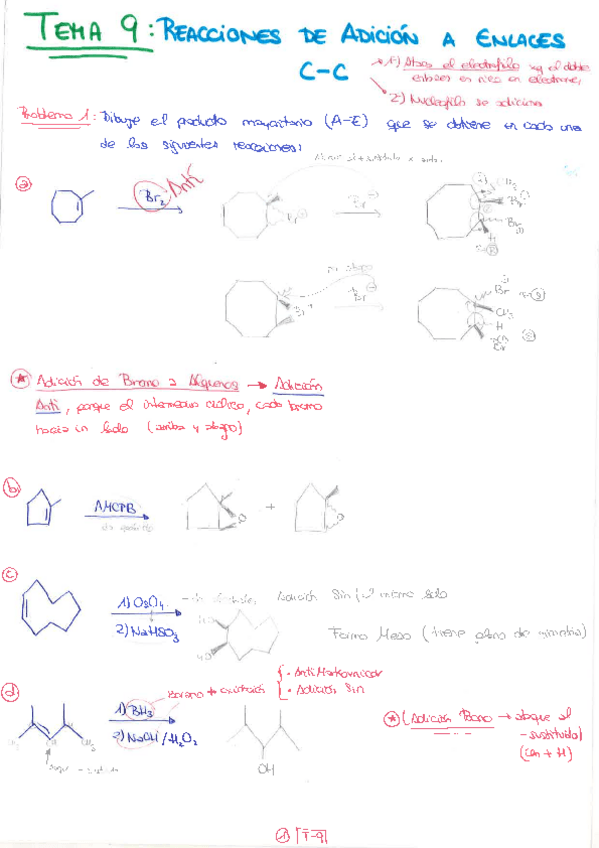 TEMA 9: REACCIONES DE ADICIÓN A ENLACES
C-C
1) Ataca el electrófilo y el doble
enlace es rico en electrones
2) Nucleófilo se adiciona
Problema 1: Dibuje el producto mayoritario (A-E) que se obtiene en cada una
de las siguientes reacciones:
a
Br2 Anti
Br
Br
CH3
Br
H
Br
Br
Br
CH3
H
Br
* Adición de Bromo a Alquenos → Adición
Anti, porque el intermedio cíclico, cada bromo
hacia un lado (arriba y abajo)
b
AMCPB
O
+
O
c
1) OsO4
2) NaHSO3
HO
HO
Adición Sin mismo lado
Forma Meso (tiene plano de simetría)
d
Borano + oxidación
· AntiMarkovnikov
· Adición Sin
1) BH3
2) NaOH/H2O2
CH3
CH3
OH
* (Adición Borano → ataque al
- sustituido)
(con + H)
1 T-9